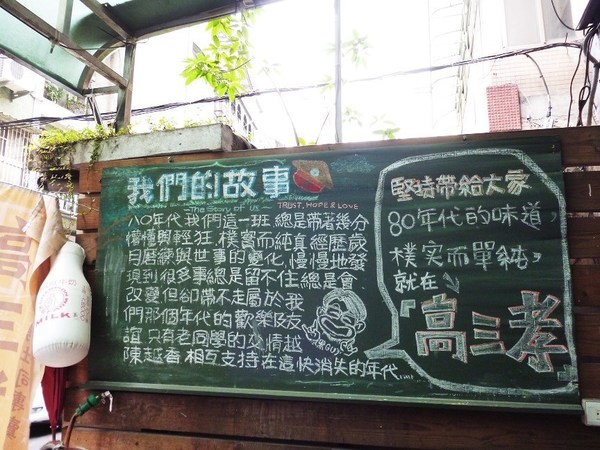 我們的故事
The Story of us
TRUST, HOPE & LOVE
八〇年代我們這一班,總是帶著幾分
懵懂與輕狂,樸實而純真.經歷歲
月磨礪與世事的變化,慢慢地發
現到很多事總是留不住,總是會
改變.但卻帶不走屬於我
們那個年代的歡樂及友
誼.只有老同學的交情越
陳越香.相互支持在這快消失的年代....
堅持帶給大家
80年代的味道,
樸實而單純,
就在
『高三孝』
MILK